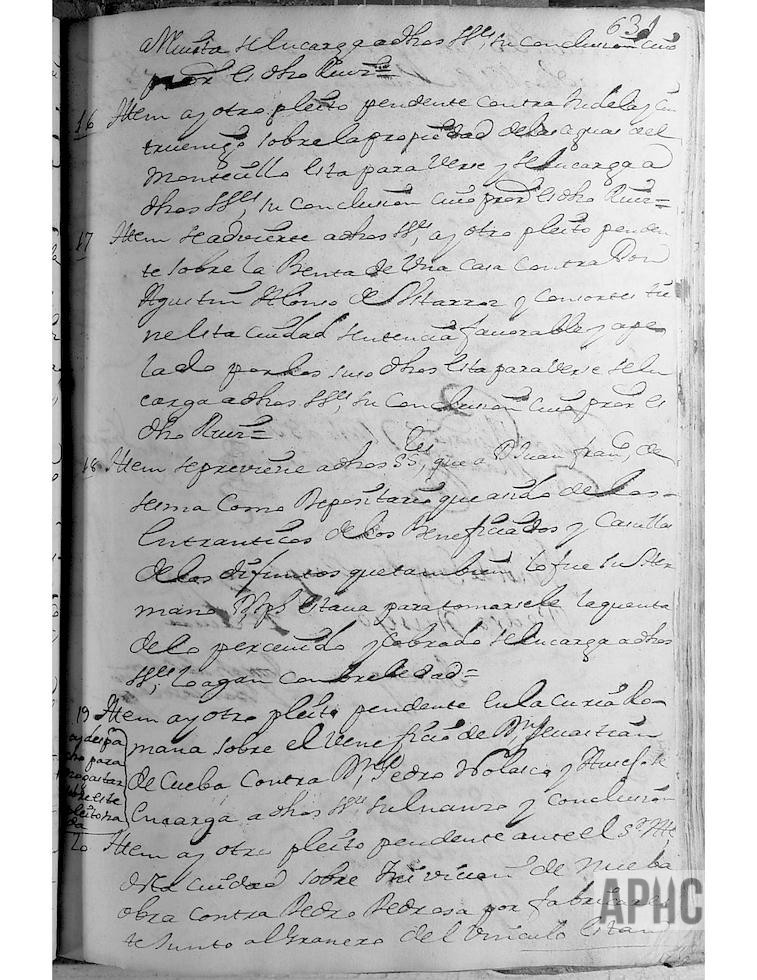 631
se encarga a dhos SSres, su conclusion cuio
es dho Ruiz=
16 Ittem ay otro pleito pendente contra
sobre la propiedad de las aguas del
Montecillo esta para Verse y se encarga a
dhos SSres, su conclusion cuio pror es dho Ruiz=
17 Ittem se advierte a dhos SSres, ay otro pleito penden
te sobre la Benta de Una casa contra Don
Agustin Alonso de y consortes tie
ne esta ciudad sentencia favorable y ape
lado por los suso dhos esta para Verse se en
carga a dhos SSres, su conclusion cuio pror es
dho Ruiz=
18 Ittem se previene a dhos SSres, que a Dn Juan Franco, de
sesma Como Depositario que a sido de los
Entranticos de los Beneficiados y Casulla
de los difuntos que tambien lo fue su Her
mano estava para tomarsele la quenta
de lo percevido y Cobrado se encarga a dhos
SSres, lo agan con brebedad=
19 Ittem ay otro pleito pendente en la curia Ro
mana sobre el Veneficio de Dn Sevastian
de Cueba Contra Dn Pedro Nolasco y se
Encarga a dhos SSres su y conclusion
ay despa
cho para
no gastar
sobre este
pleito na
da
20 Ittem ay otro pleito pendente ante el
desta ciudad sobre de Nueba
obra contra Pedro Pedrosa por fabricar es
te Junto al Granero del Vinculo estan
APHC